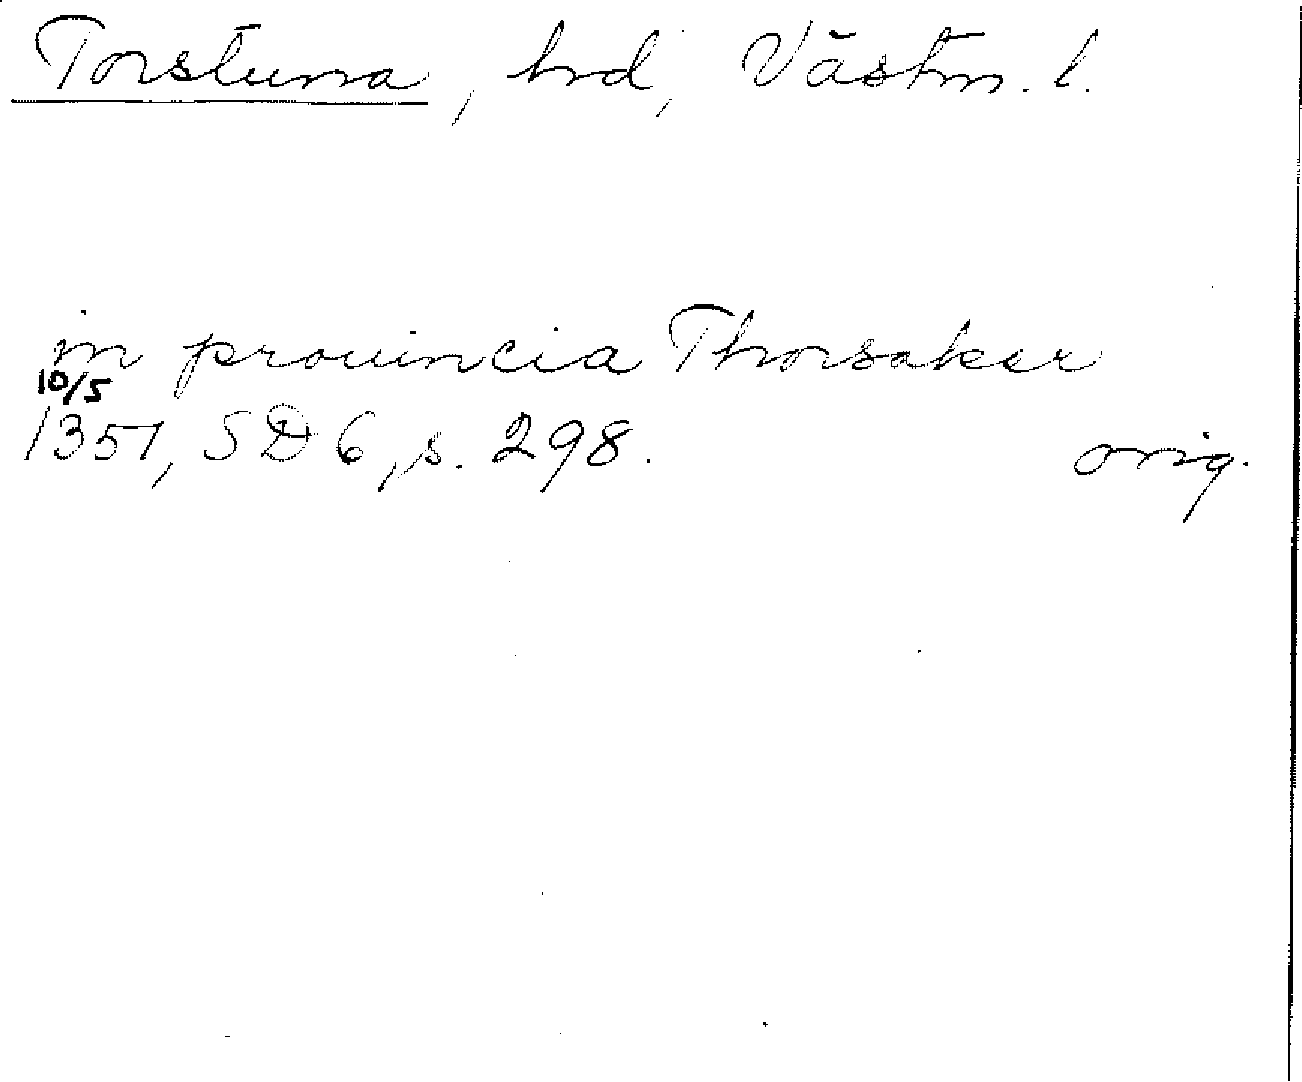 Torstuna, hrd, Västm. l.
in prouincia Thorsaker
10/5
1351, SD 6, s. 298. orig.